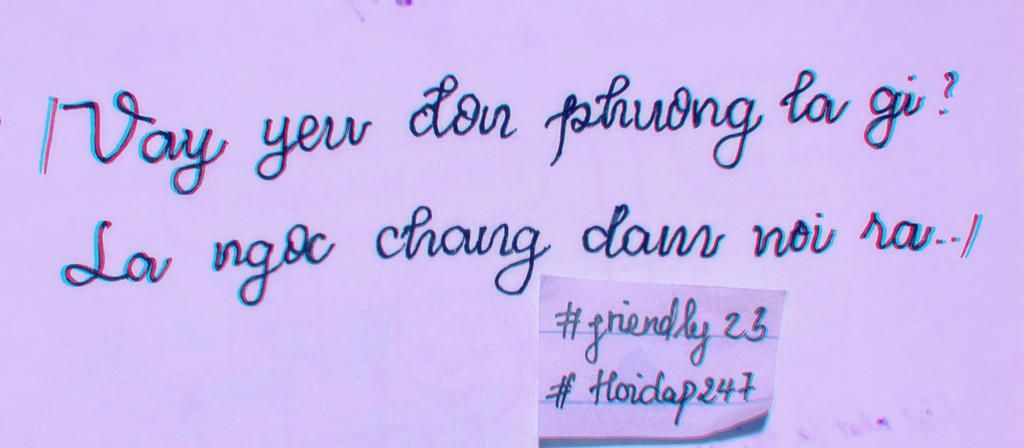 /Vay yeu đon phuong la gi?
La ngoc chang dam noi ra../
#friendly 23
# Hoidap247